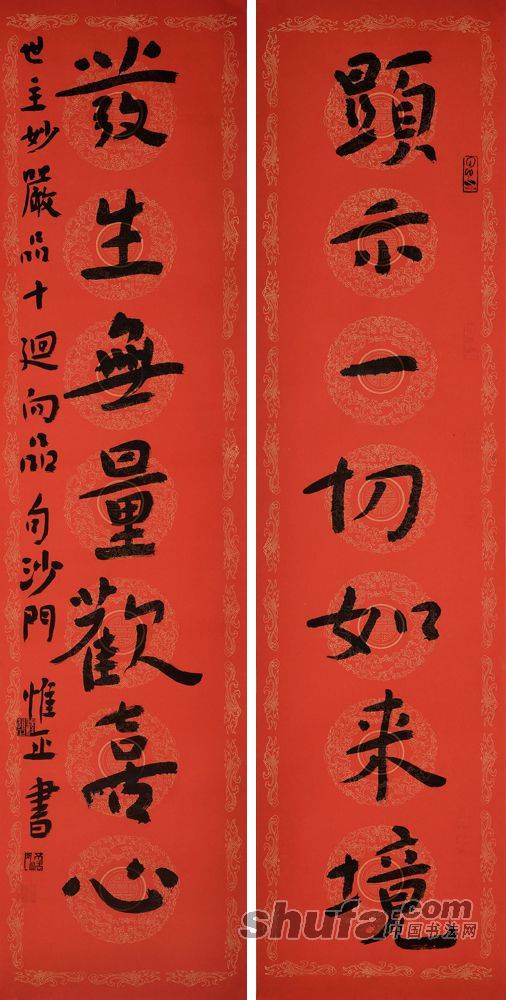 顕示一切如来境
發生無量歡喜心
世主妙嚴品十迴向品句沙門惟正書
shufa.com
中国书法网